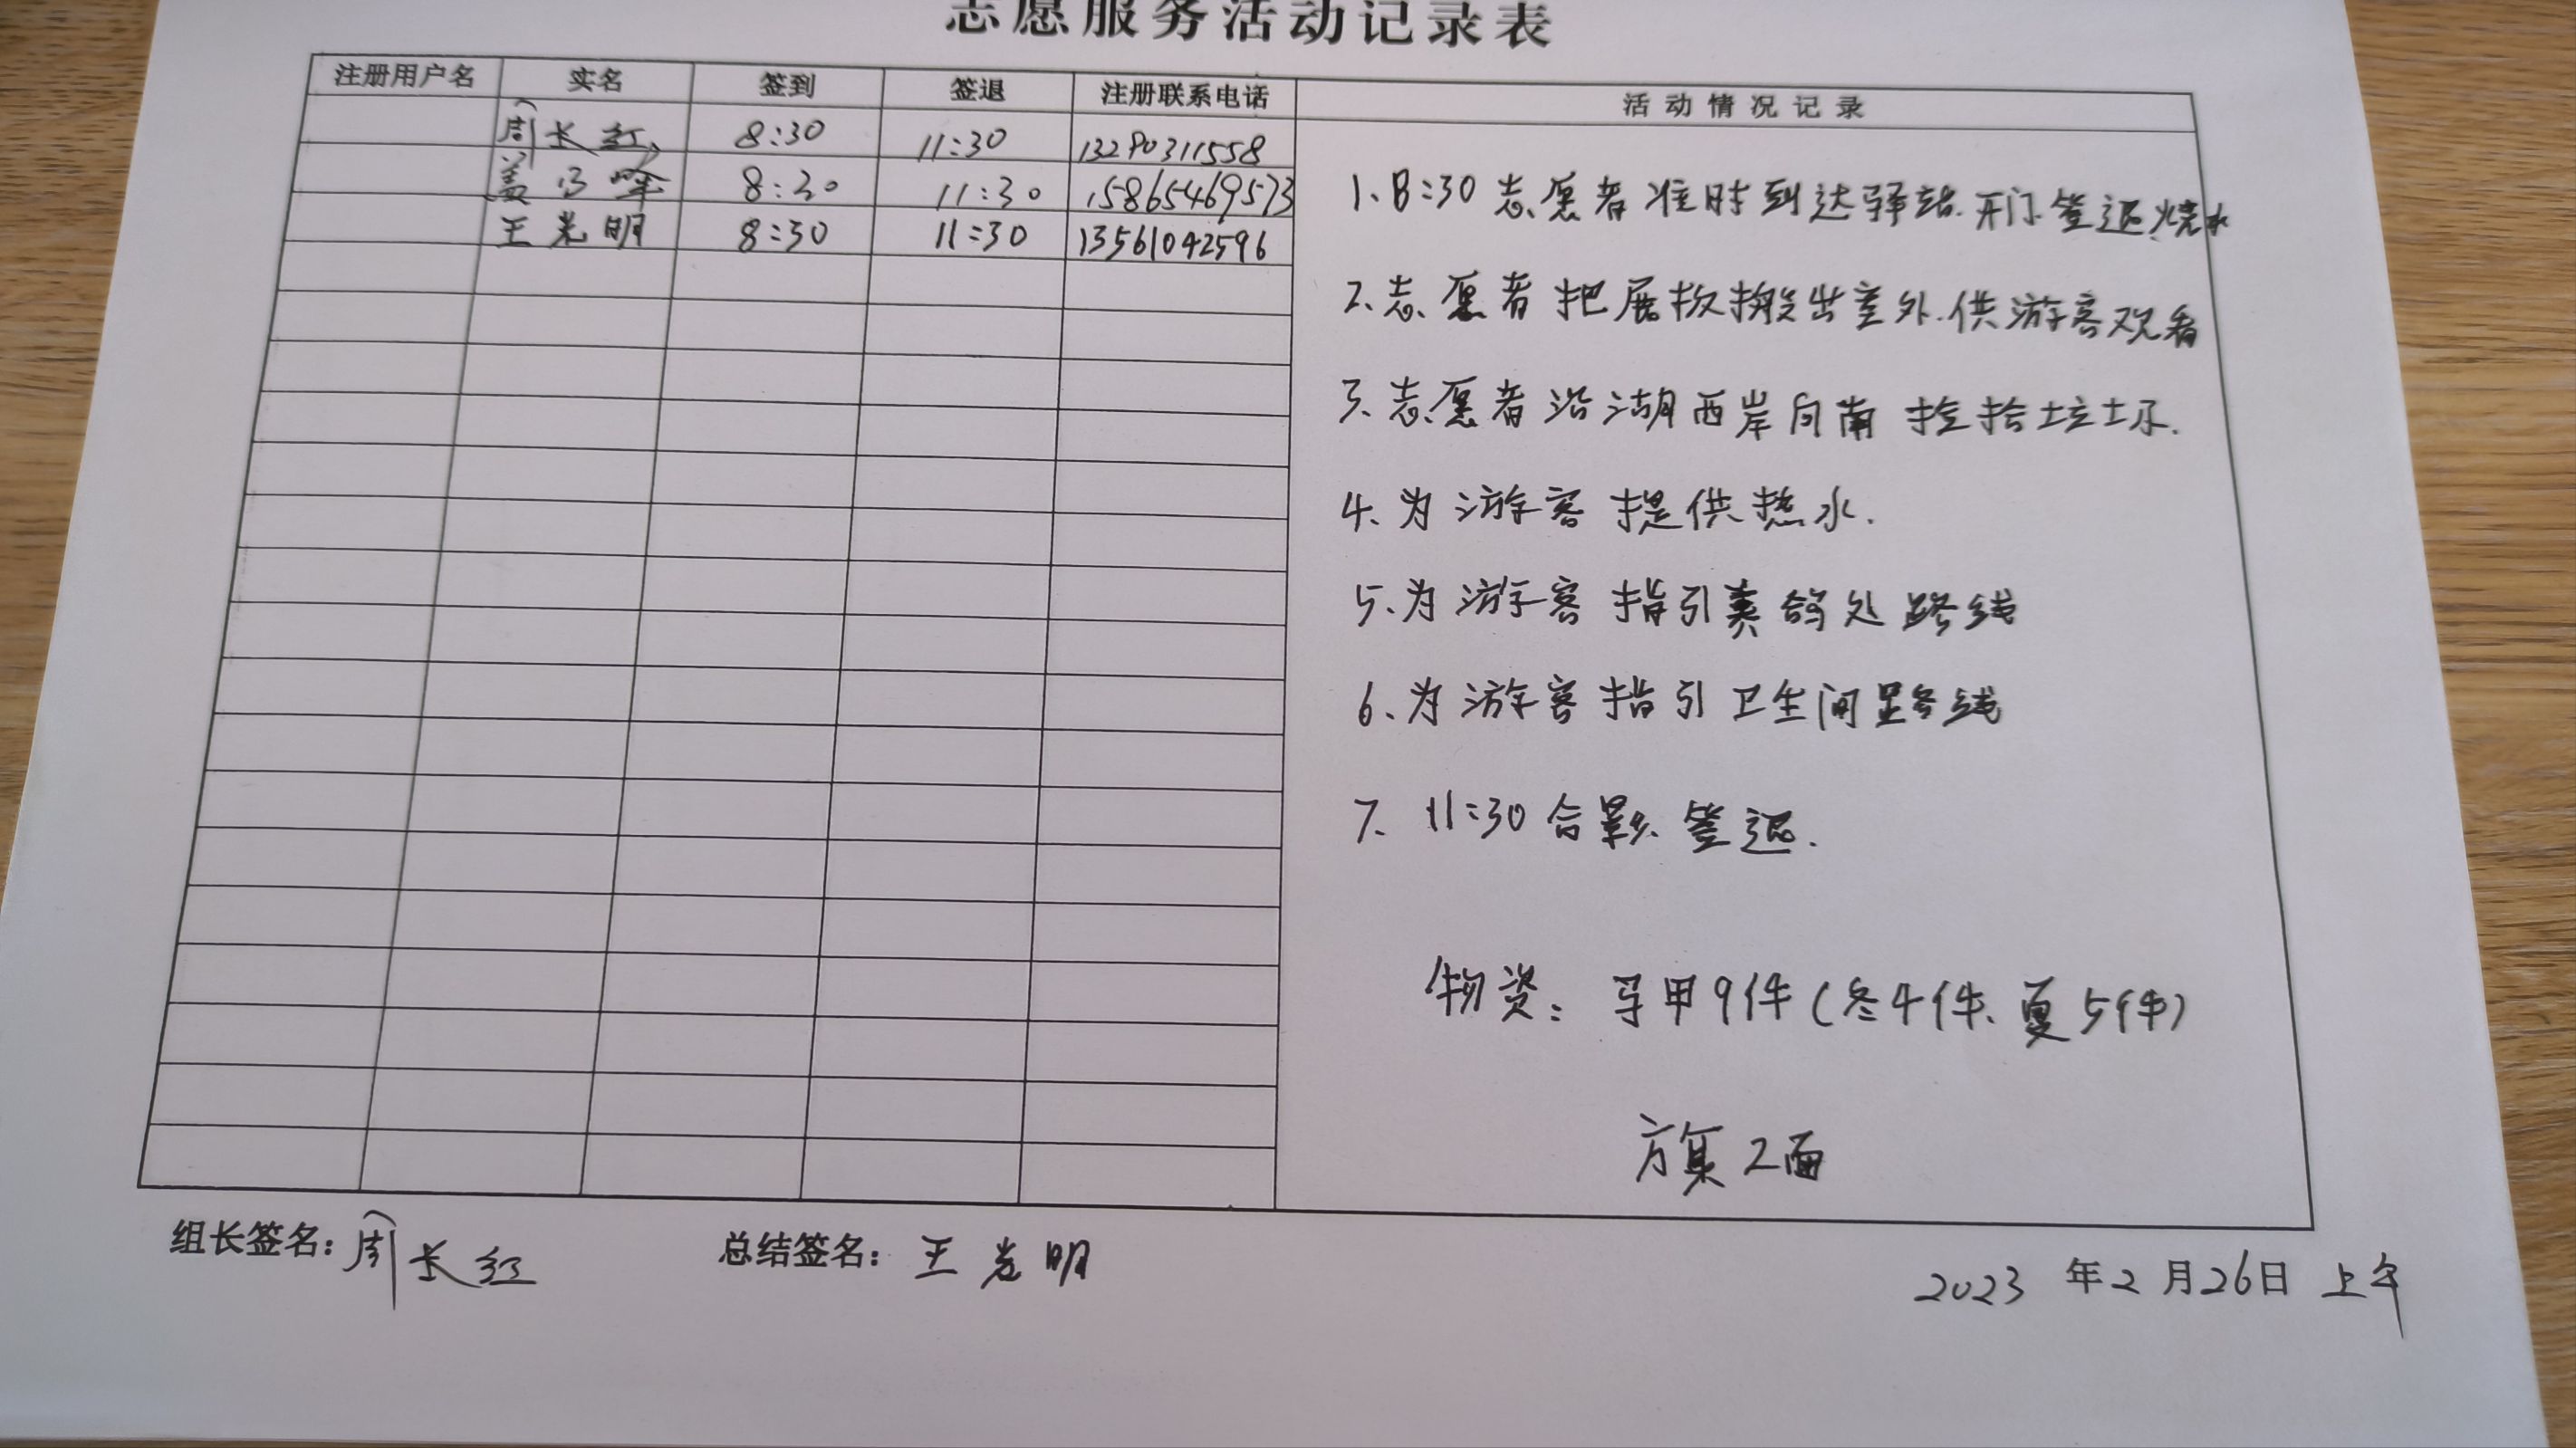 志愿服务活动记录表
注册用户名 实名 签到 签退 注册联系电话 活动情况记录
周长红 8:30 11:30 13280311558
盖 8:30 11:30 15865469573
王光明 8:30 11:30 13561042596
1、8:30 志愿者准时到达驿站.开门.签退烧水
2、志愿者把展板搬出室外.供游客观看
3、志愿者沿湖西岸向南捡拾垃圾.
4、为游客提供热水.
5、为游客指引 鸽处路线
6、为游客指引卫生间路线
7、11:30合影、签退.
物资：马甲9件(冬4件、夏5件)
旗2面
组长签名：周长红 总结签名：王光明
2023 年2月26日 上午